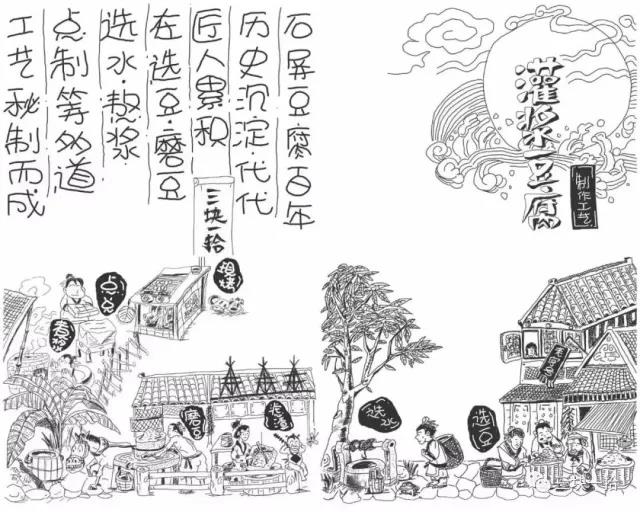 灌浆豆腐
制作工艺
石屏豆腐百年
历史沉淀·代代
匠人累积
左选豆·磨豆
选水·熬浆
点制等多道
工艺秘制而成
三块一拾
现烤
煮浆
磨豆
选水
选豆